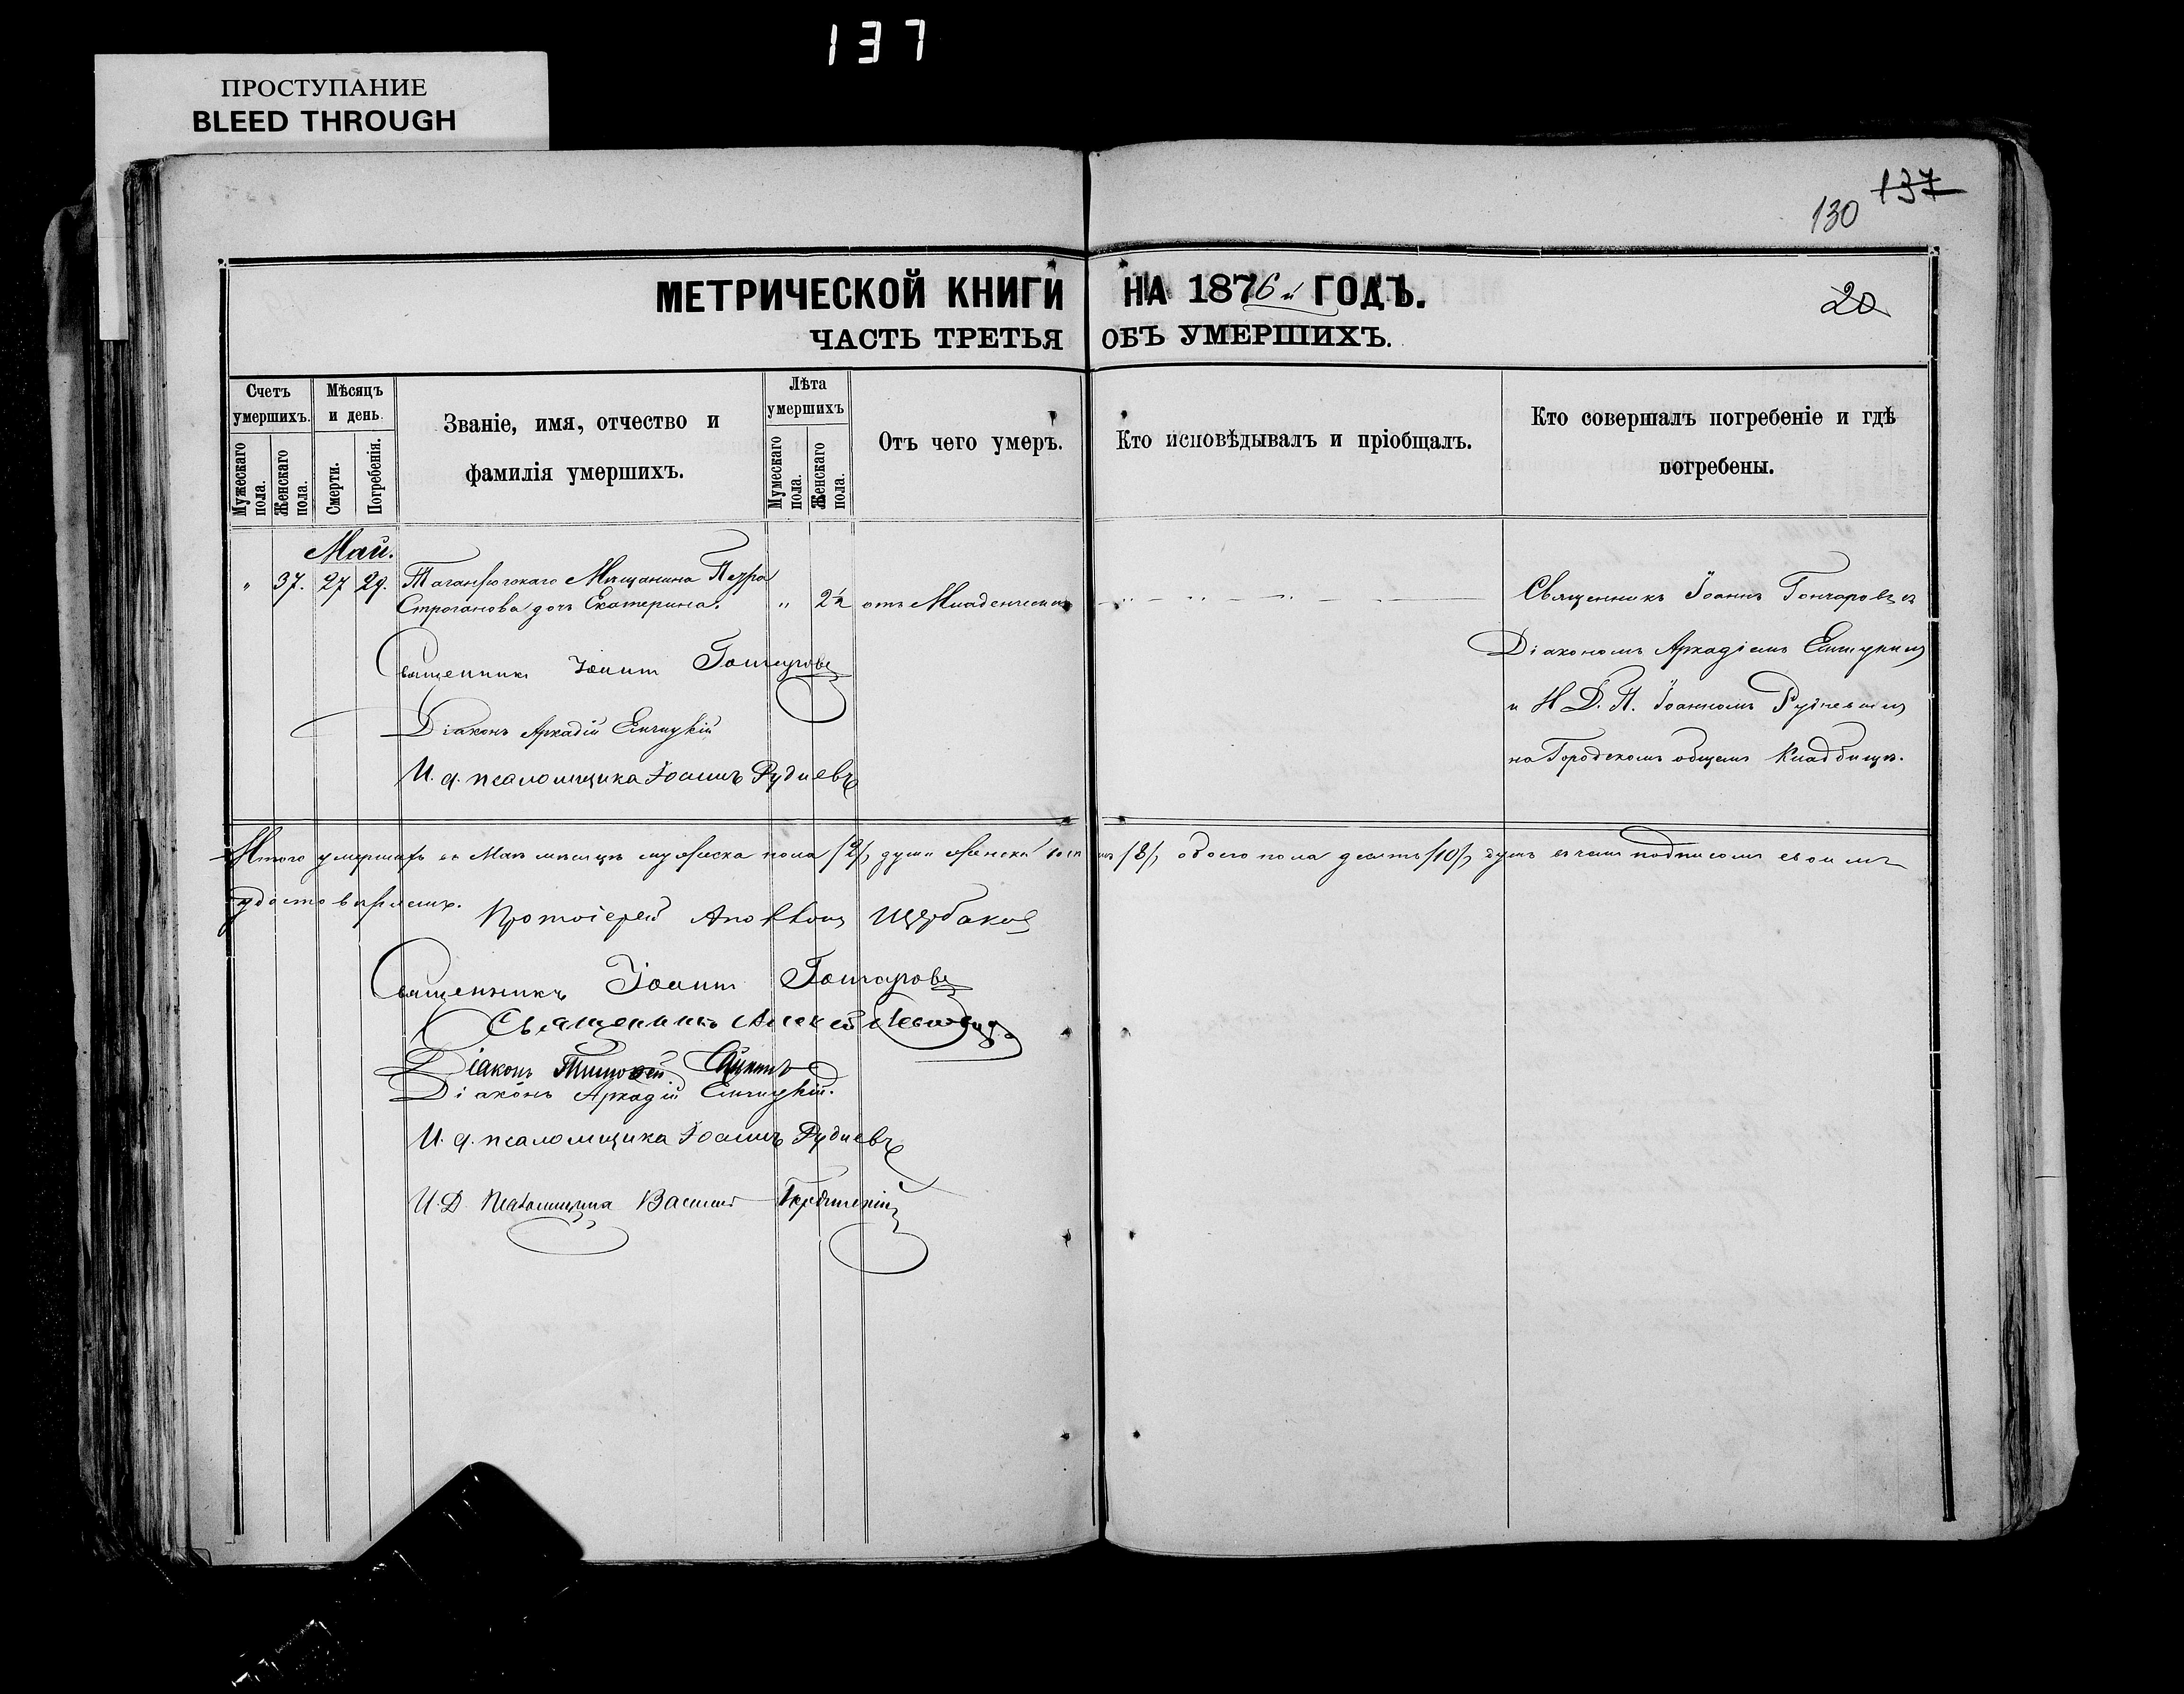 137
ПРОСТУПАНИЕ
BLEED THROUGH
137
130
МЕТРИЧЕСКОЙ КНИГИ НА 1876й ГОДЪ.
20
ЧАСТЬ ТРЕТЬЯ ОБЪ УМЕРШИХЪ.
Счетъ умершихъ.
Мѣсяцъ и день
Званіе, имя, отчество и фамилія умершихъ.
Лѣта умершихъ
Отъ чего умеръ.
Кто исповѣдывалъ и пріобщалъ.
Кто совершалъ погребеніе и гдѣ погребены.
Мужескаго пола.
Женскаго пола.
Смерти.
Погребенія.
Мужескаго пола.
Женскаго пола.
Май.
" 37. 27 29. Таганрогскаго Мѣщанина Петра
Строганова дочь Екатерина. " 2½ отъ Младенческ
Священникъ Іоаннъ Гончаровъ съ
Діакономъ Аркадіемъ
и И. Д. П. Іоанномъ Рудневымъ
на Городскомъ общемъ Кладбищѣ.
Священникъ Іоаннъ Гончаровъ
Діаконъ Аркадій
И. д. псаломщика Іоаннъ Рудневъ
Итого умершихъ въ Маѣ мѣсяцѣ мужеска пола /2/ души женска /8/, обоего пола десять /10/ душъ въ чемъ подписомъ своимъ
удостовѣряемъ.
Протоіерей Щербаковъ
Священникъ Іоаннъ Гончаровъ
Священникъ Алексѣй
Діаконъ Тимофей
Діаконъ Аркадій
И. д. псаломщика Іоаннъ Рудневъ
И. Д. Псаломщика Василій